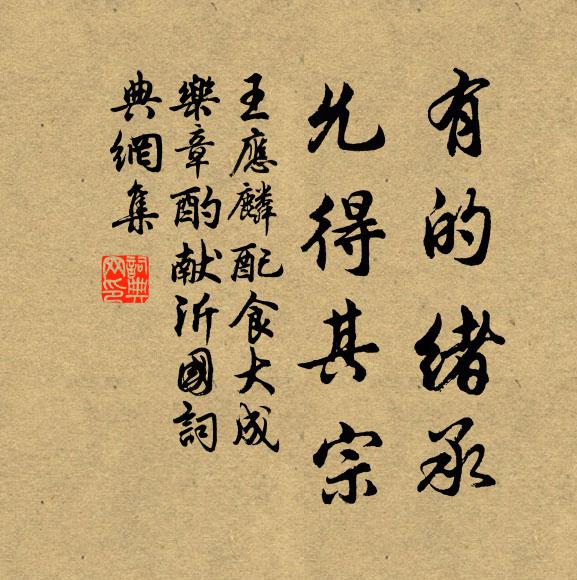 有的緒承
允得其宗
王應麟配食大成
樂章酌献沂國詞
典網集
詞典網印